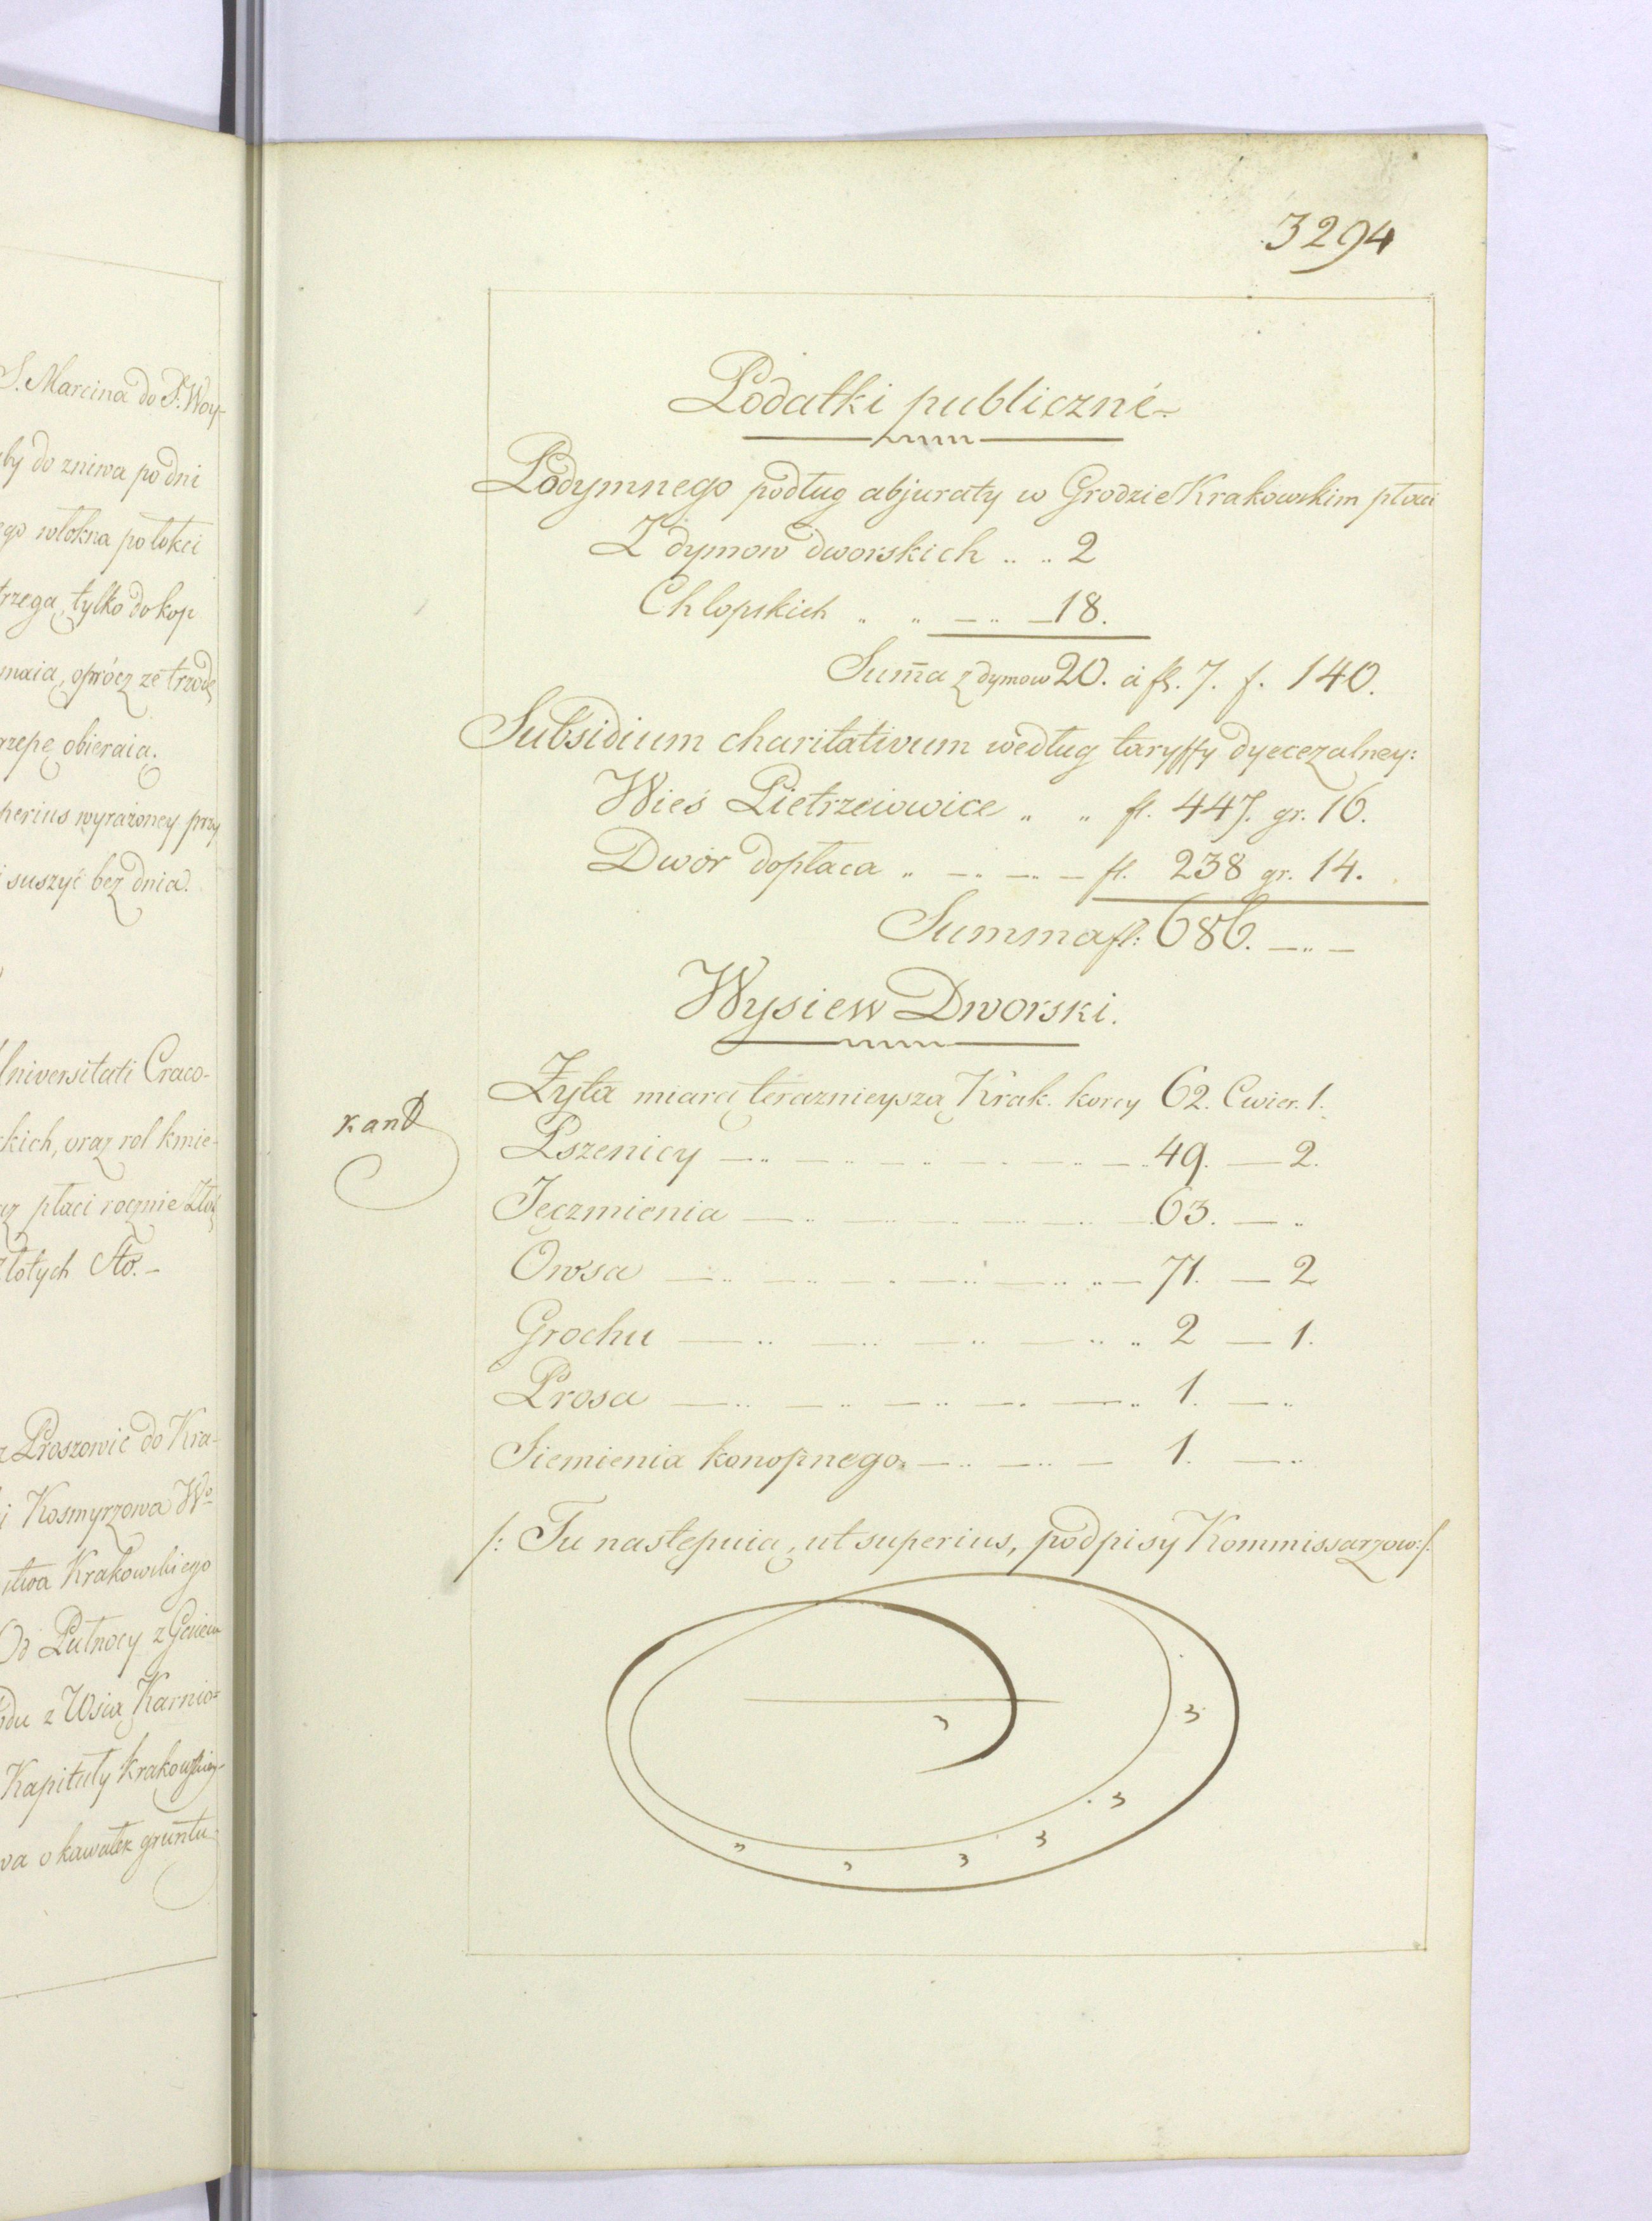 S. Marcina do S. Woy-
by do zniwa po dni
ego włokna po łokci
trzega, tylko do kop
maia, oprócz ze trzodę
rzepę obieraią.
perius wyrażoney przy
suszyć bez dnia.
Universitati Craco-
kich, oraz rol kmie-
płaci rocznie
złotych sto.-
Proszowic do Kra-
i Kosmyrzowa Wo
stwa Krakowskiego
Od Pułnocy z
du z Wsią Karnio=
Kapituły Krakowskiey
wa o kawałek gruntu
3294
Podatki publiczné
Podymnego podług abjuraty w Grodzie Krakowskim płaci
Z dymow dworskich .. .. 2
Chłopskich .. .. — .. — 18.
Sum̄a z dymow 20. à fl. 7. f. 140.
Subsidium charitativum według taryffy dyecezalney:
Wieś Pietrzeiowice „ „ fl. 447. gr. 16.
Dwór dopłaca „ — .. — .. — fl. 238 gr. 14.
Summa fl: 686. — .. —
Wysiew Dworski.
Żyta miarą teraznieyszą Krak. korcy 62. Cwier. 1.
Pszenicy — .. — .. — .. — .. — .. — .. 49. — 2.
Jęczmienia — .. — .. — .. — .. — 63. — ..
Owsa — .. — .. — .. — .. — .. — 71. — 2
Grochu — .. — .. — .. — .. .. 2 — 1.
Prosa — .. — .. — .. — .. — .. 1. — ..
Siemienia konopnego. — .. — .. — 1. — ..
/: Tu następuią, ut superius, podpisy Kommissarzow :/